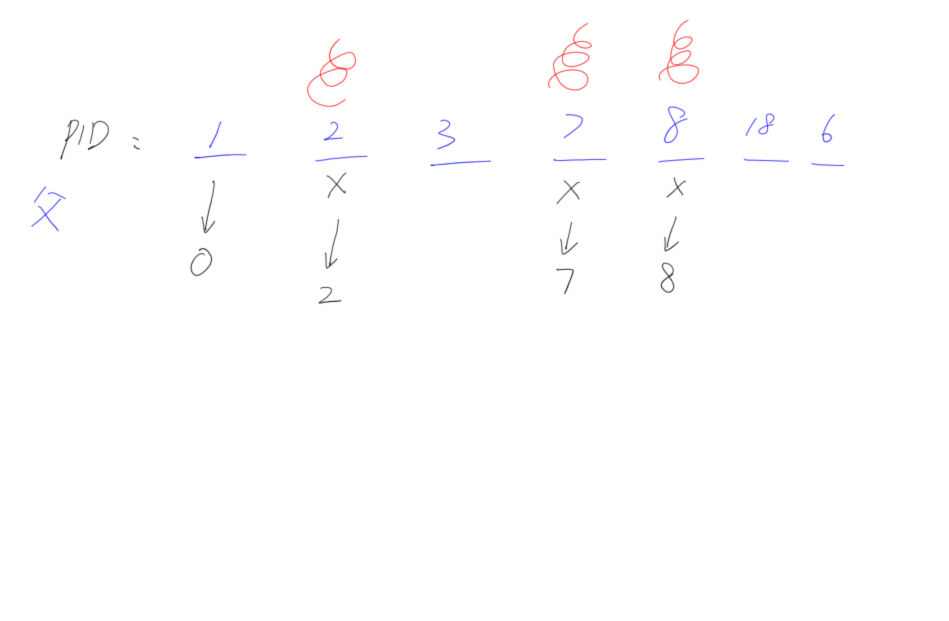 PID: 1 2 3 7 8 18 6
父 X X X
0 2 7 8